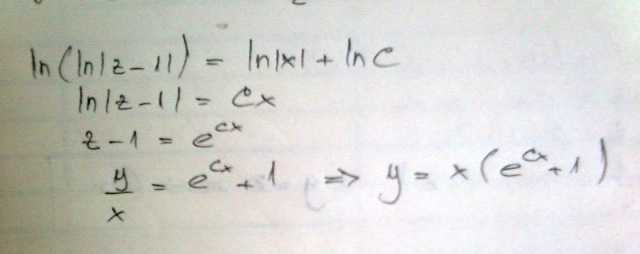 ln(ln|z-1|) = ln|x| + ln c
ln|z-1| = cx
z-1 = e^{cx}
y/x = e^{cx}+1 => y = x(e^{cx}+1)